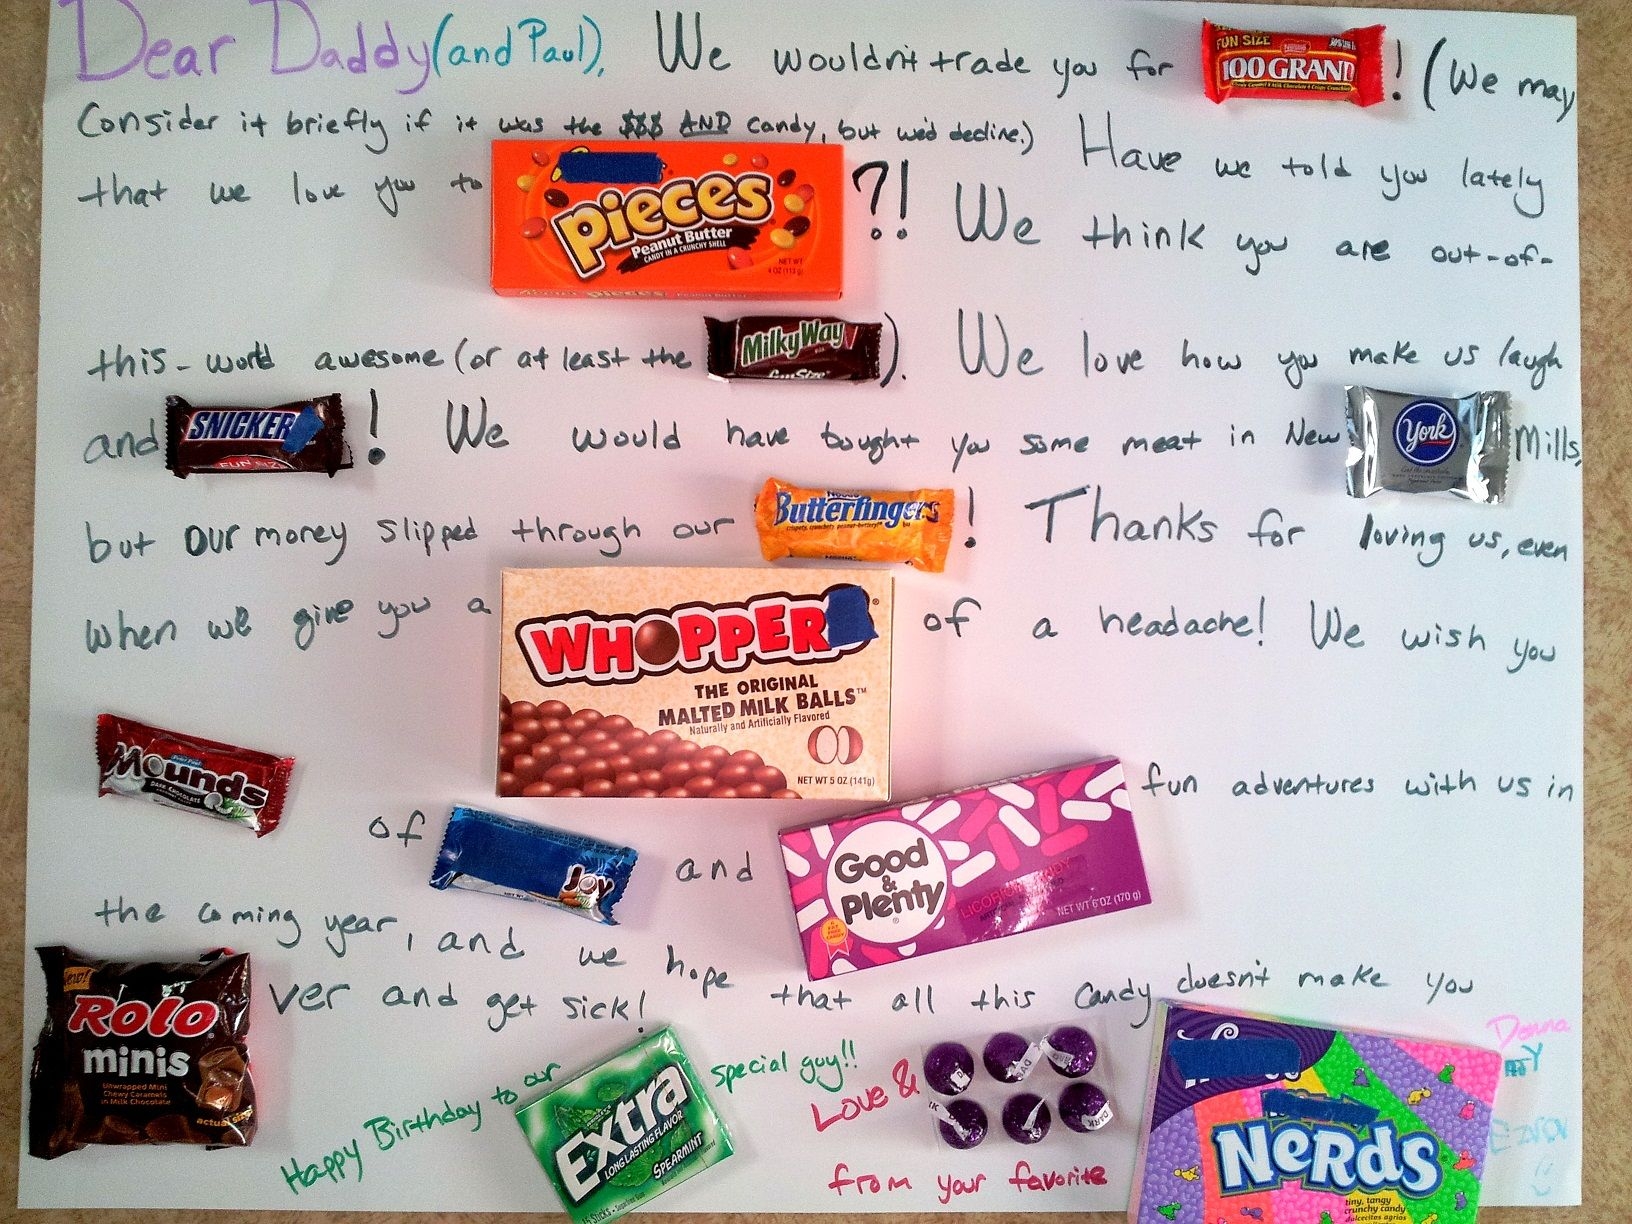 Dear Daddy (and Paul), We wouldn't trade you for FUN SIZE Nestle 100 GRAND ! (We may
Consider it briefly if it was the $$$ AND candy, but we'd decline.) Have we told you lately
that we love you to Pieces ?! We think you are out-of-
Peanut Butter
CANDY IN A CRUNCHY SHELL
NET WT
4 OZ (113 g)
this-world awesome (or at least the MilkyWay ). We love how you make us laugh
Fun Size
and SNICKER ! We would have bought you some meat in New York Mills,
FUN SIZE
but our money slipped through our Butterfingers ! Thanks for loving us, even
when we give you a WHOPPER of a headache! We wish you
THE ORIGINAL
MALTED MILK BALLS™
Naturally and Artificially Flavored
NET WT 5 OZ (141g)
Mounds of Joy and Good & Plenty fun adventures with us in
DARK CHOCOLATE
NET WT 6 OZ (170 g)
the coming year, and we hope that all this candy doesn't make you
Rolo ver and get sick!
minis
Unwrapped Mini
Chewy Caramels
in Milk Chocolate
actual size
Happy Birthday to our Extra special guy!!
LONG LASTING FLAVOR
SPEARMINT
Love &
DARK
from your favorite NERDS
tiny, tangy
crunchy candy
dulcecitos agrios
Donna